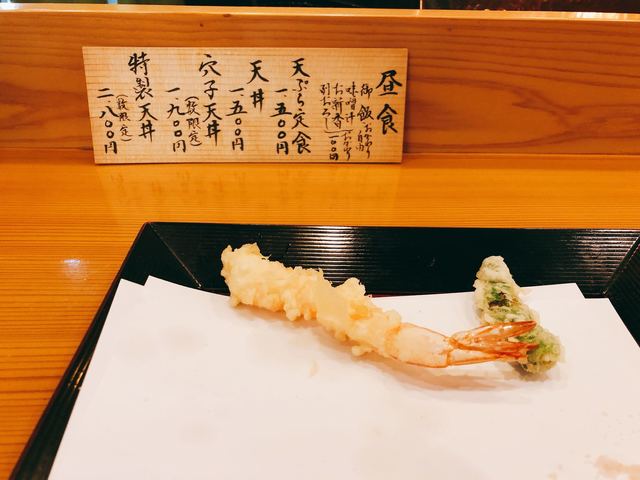 昼食
御飯 おかわり自由
味噌汁(おかわり
お新香
別おろし 一〇〇円
天ぷら定食
一.五〇〇円
天丼
一.五〇〇円
穴子天丼
(数限定)
一.九〇〇円
特製天丼
(数限定)
二.八〇〇円